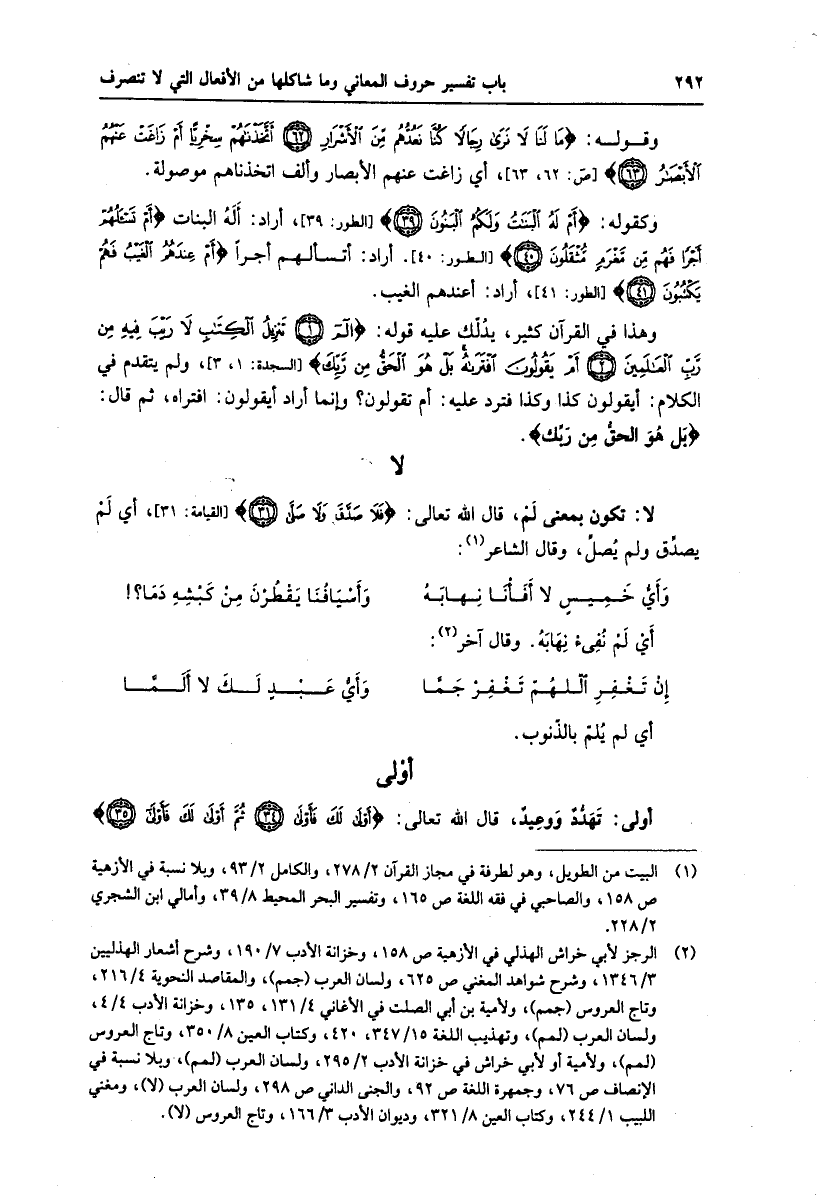 ٢٩٢ باب تفسير حروف المعاني وما شاكلها من الأفعال التي لا تتصرف
وقوله: ﴿مَا لَنَا لَا نَرَىٰ رِجَالًا كُنَّا نَعُدُّهُم مِّنَ ٱلْأَشْرَارِ ۝٦٢ أَتَّخَذْنَٰهُمْ سِخْرِيًّا أَمْ زَاغَتْ عَنْهُمُ
ٱلْأَبْصَٰرُ ۝٦٣﴾ [صَ: ٦٢، ٦٣]، أي زاغت عنهم الأبصار وألف اتخذناهم موصولة.
وكقوله: ﴿أَمْ لَهُ ٱلْبَنَٰتُ وَلَكُمُ ٱلْبَنُونَ ۝٣٩﴾ [الطور: ٣٩]، أراد: أَلَهُ البنات ﴿أَمْ تَسْـَٔلُهُمْ
أَجْرًا فَهُم مِّن مَّغْرَمٍ مُّثْقَلُونَ ۝٤٠﴾ [الطور: ٤٠]. أراد: أتسألهم أجراً ﴿أَمْ عِندَهُمُ ٱلْغَيْبُ فَهُمْ
يَكْتُبُونَ ۝٤١﴾ [الطور: ٤١]، أراد: أعندهم الغيب.
وهذا في القرآن كثير، يدُلّك عليه قوله: ﴿الٓمٓ ۝١ تَنزِيلُ ٱلْكِتَٰبِ لَا رَيْبَ فِيهِ مِن
رَّبِّ ٱلْعَٰلَمِينَ ۝٢ أَمْ يَقُولُونَ ٱفْتَرَىٰهُ بَلْ هُوَ ٱلْحَقُّ مِن رَّبِّكَ﴾ [السجدة: ١، ٣]، ولم يتقدم في
الكلام: أيقولون كذا وكذا فترد عليه: أم تقولون؟ وإنما أراد أيقولون: افتراه، ثم قال:
﴿بَل هُوَ الحقُّ مِن رَبِّك﴾.
لا
لا: تكون بمعنى لَمْ، قال الله تعالى: ﴿فَلَا صَدَّقَ وَلَا صَلَّىٰ ۝٣١﴾ [القيامة: ٣١]، أي لَمْ
يصدِّق ولم يُصلِّ، وقال الشاعر(١):
وَأَيُّ خَمِيسٍ لا أَفَأْنَا نِهَابَهُ وَأَسْيَافُنَا يَقْطُرْنَ مِنْ كَبْشِهِ دَمَا؟!
أَيْ لَمْ نُفِىءْ نِهَابَهُ. وقال آخر(٢):
إِنْ تَغْفِرِ ٱللهُمّ تَغْفِرْ جَمَّا وَأَيُّ عَبْدٍ لَكَ لا أَلَمَّا
أي لم يُلمّ بالذّنوب.
أوْلى
أولى: تَهَدُّدٌ وَوعِيدٌ، قال الله تعالى: ﴿أَوْلَىٰ لَكَ فَأَوْلَىٰ ۝٣٤ ثُمَّ أَوْلَىٰ لَكَ فَأَوْلَىٰ ۝٣٥﴾
(١) البيت من الطويل، وهو لطرفة في مجاز القرآن ٢/ ٢٧٨، والكامل ٢/ ٩٣، وبلا نسبة في الأزهية
ص ١٥٨، والصاحبي في فقه اللغة ص ١٦٥، وتفسير البحر المحيط ٨/ ٣٩، وأمالي ابن الشجري
٢/ ٢٢٨.
(٢) الرجز لأبي خراش الهذلي في الأزهية ص ١٥٨، وخزانة الأدب ٧/ ١٩٠، وشرح أشعار الهذليين
٣/ ١٣٤٦، وشرح شواهد المغني ص ٦٢٥، ولسان العرب (جمم)، والمقاصد النحوية ٤/ ٢١٦،
وتاج العروس (جمم)، ولأمية بن أبي الصلت في الأغاني ٤/ ١٣١، ١٣٥، وخزانة الأدب ٤/ ٤،
ولسان العرب (لمم)، وتهذيب اللغة ١٥/ ٣٤٧، ٤٢٠، وكتاب العين ٨/ ٣٥٠، وتاج العروس
(لمم)، ولأمية أو لأبي خراش في خزانة الأدب ٢/ ٢٩٥، ولسان العرب (لمم)، وبلا نسبة في
الإنصاف ص ٧٦، وجمهرة اللغة ص ٩٢، والجنى الداني ص ٢٩٨، ولسان العرب (لا)، ومغني
اللبيب ١/ ٢٤٤، وكتاب العين ٨/ ٣٢١، وديوان الأدب ٣/ ١٦٦، وتاج العروس (لا).